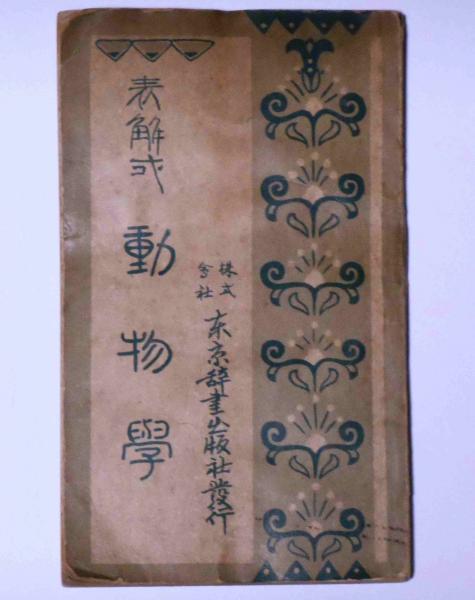 表解式 動物學
株式会社 东京辞書出版社發行